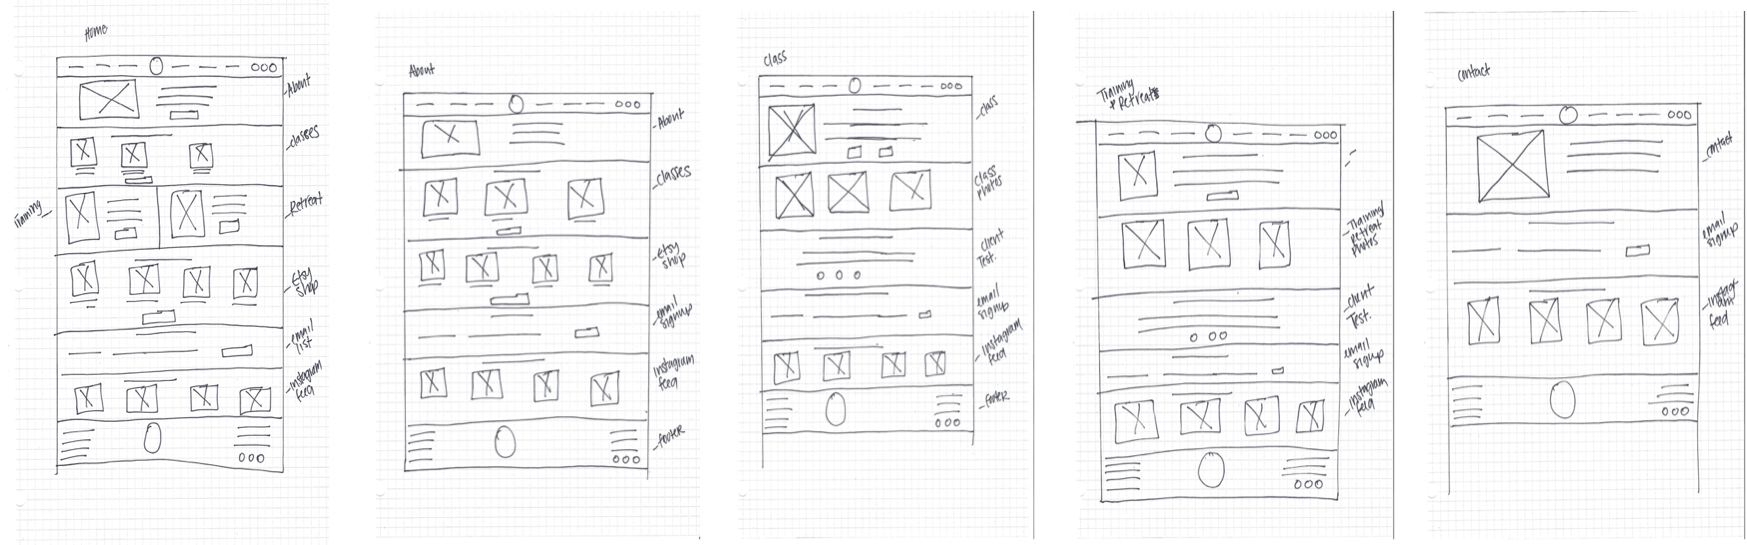 Home
About
classes
Training
Retreat
Etsy
shop
email
list
instagram
feed
About
About
classes
etsy
shop
email
signup
instagram
feed
footer
class
class
class
photos
client
Test.
email
signup
instagram
feed
footer
Training
& Retreats
Training
retreat
photos
client
Test.
email
signup
instagram
feed
contact
contact
email
signup
feed